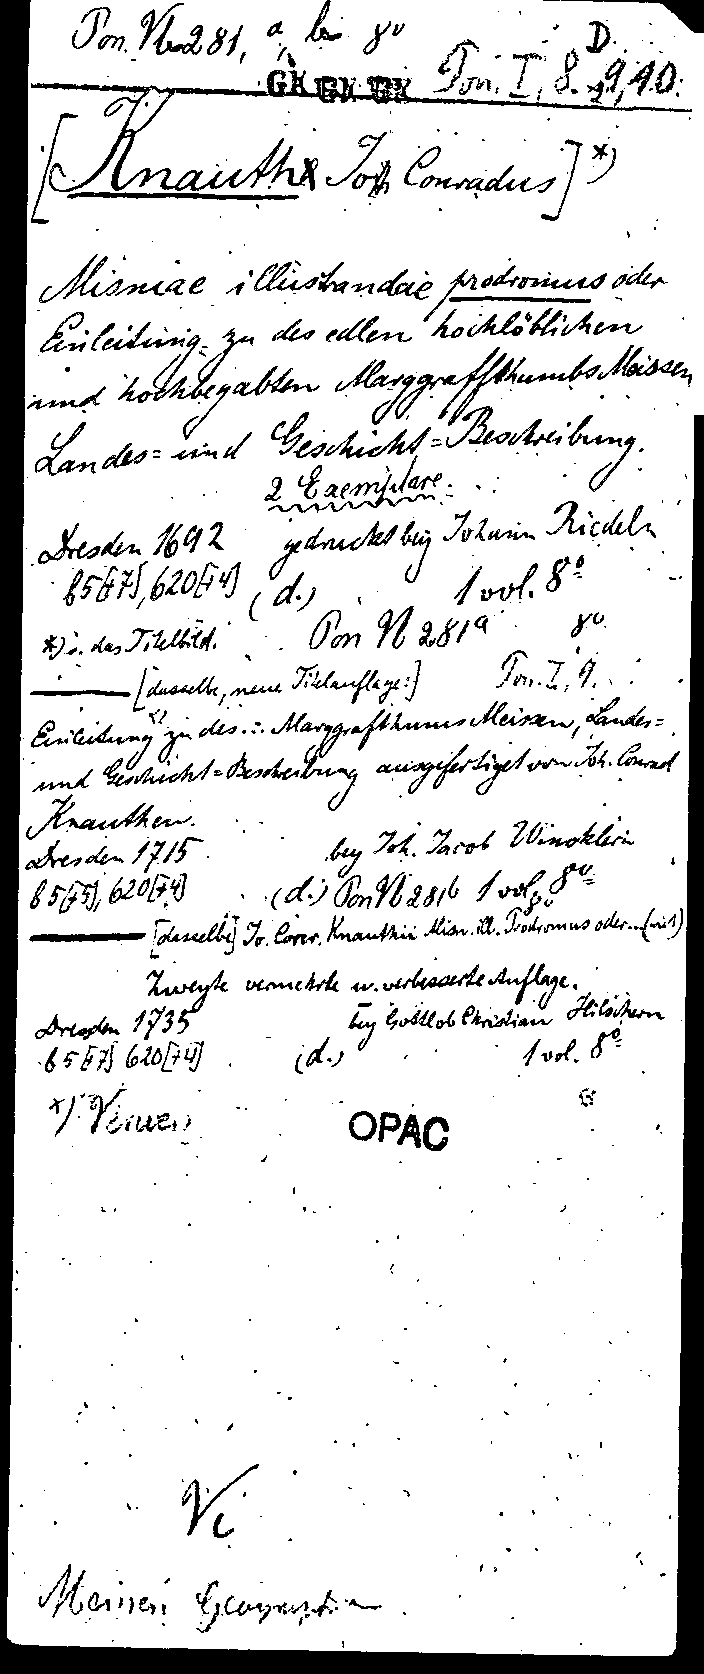 Pon. Vb 281, a, b 8°
D
GK GK GK Pon. I, 8. 9, 10.
[Knauth Joh Conradus] *)
Misniae illustrandae prodromus oder
Einleitung zu des edlen hochlöblichen
und hochbegabten Marggraffthumbs Meissen
Landes= und Geschicht=Beschreibung.
2 Exemplare.
Dresden 1692 gedruckt bey Johann Riedeln
b5[+7], 620[+4] (d.) 1 vol. 8°
*) s. das Titelbild. Pon Vb 281a 8°
[dasselbe, neue Titelauflage:] Pon. I, 9.
Einleitung zu des ... Marggrafthums Meissen, Landes=
und Geschicht=Beschreibung ausgefertiget von Joh. Conrad
Knauthen.
Dresden 1715 bey Joh. Jacob Wincklern
b5[+5], 620[+4] (d.) Pon Vb 281b 1 vol. 8°
[dasselbe] Jo. Knauthii Misn. ill. Prodromus oder...
Zweyte vermehrte u. verbesserte Auflage.
Dresden 1735 bey Gottlob Christian Hilschern
b5[+7] 620[+4] (d.) 1 vol. 8°
*)
OPAC
Vi
Meissen